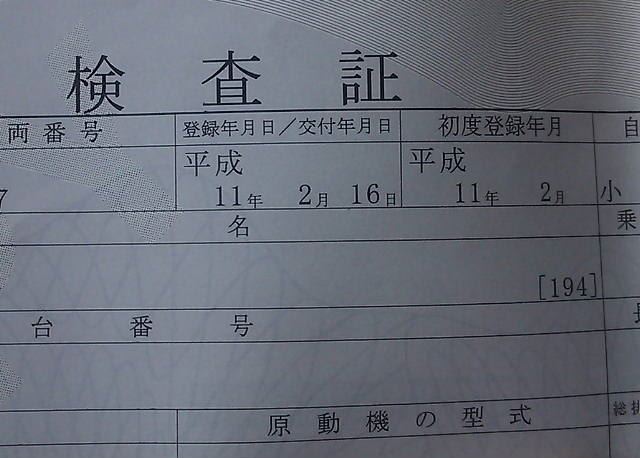 検査証
両番号 登録年月日／交付年月日 初度登録年月 自
平成 平成
7 11年 2月 16日 11年 2月 小
名 乗
[194]
台番号
原動機の型式 総排